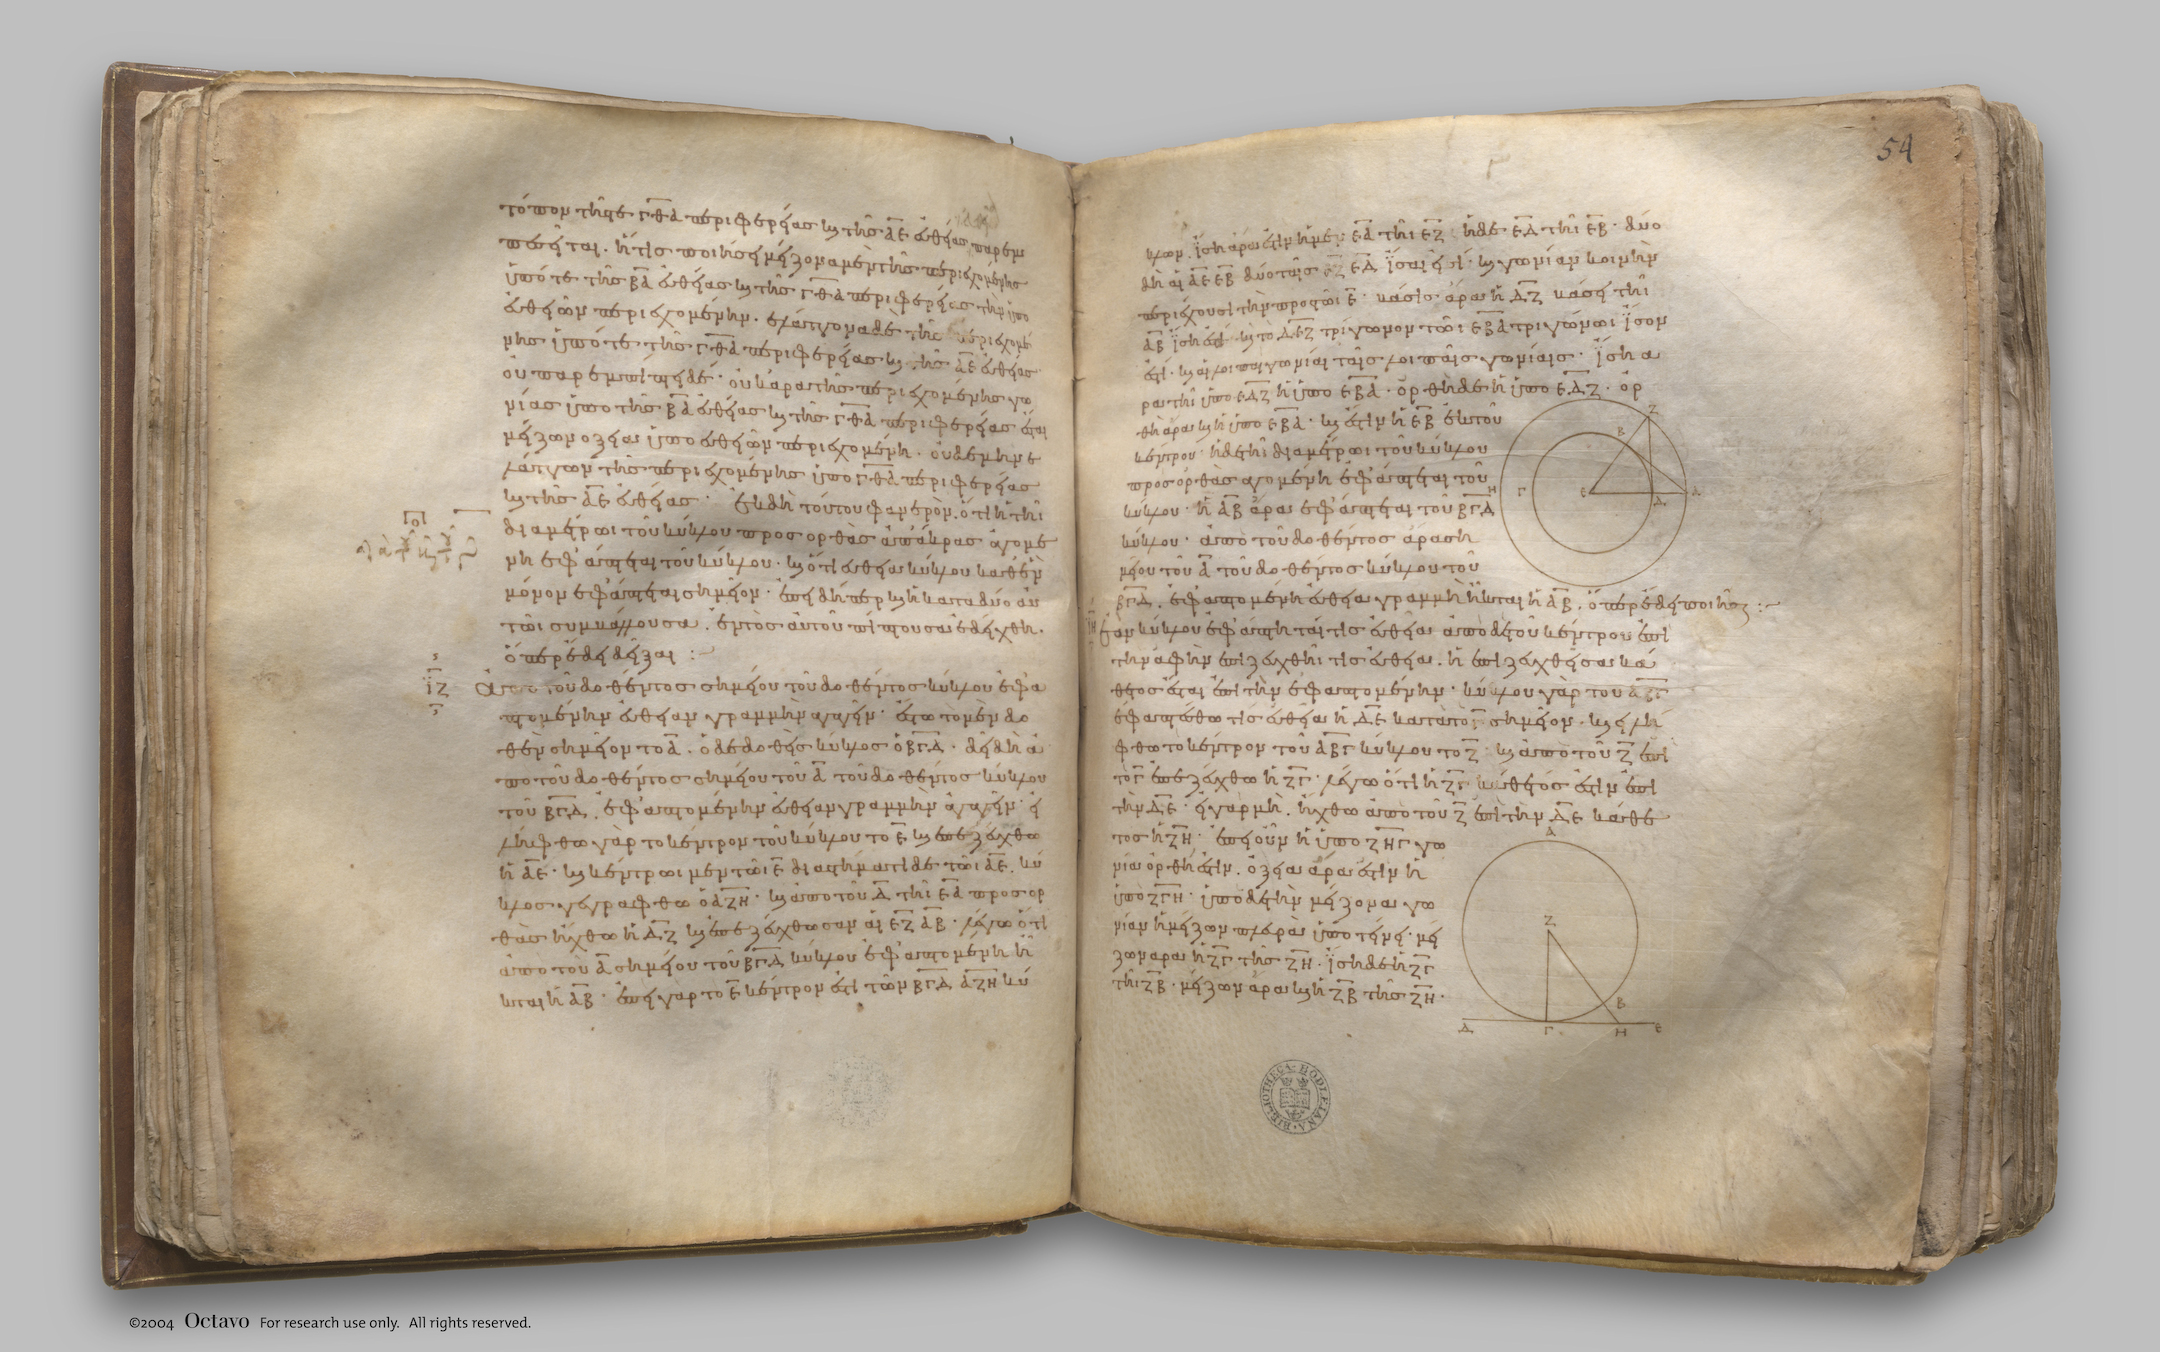 τόπον τῆς τε ΓΘΑ περιφερείας καὶ τῆς ΑΕ εὐθείας παρεμ
πεσεῖται. ἥτις ποιήσει μείζονα μὲν τῆς περιεχομένης
ὑπό τε τῆς ΒΑ εὐθείας καὶ τῆς ΓΘΑ περιφερείας τὴν ὑπο
εὐθειῶν περιεχομένην. ἐλάττονα δὲ τῆς περιεχομέ
νης ὑπό τε τῆς ΓΘΑ περιφερείας καὶ τῆς ΑΕ εὐθείας
οὐ παρεμπίπτει δέ· οὐκ ἄρα τῆς περιεχομένης γω
νίας ὑπο τῆς ΒΑ εὐθείας καὶ τῆς ΓΘΑ περιφερείας ἔσται
μείζων ὀξεῖα ὑπο εὐθειῶν περιεχομένη. οὐδε μὴν ἐ
λάττων τῆς περιεχομένης ὑπο ΓΘΑ περιφερείας
καὶ τῆς ΑΕ εὐθείας· Ἐκ δὴ τούτου φανερὸν. ὅτι ἡ τῆι
διαμέτρωι τοῦ κύκλου προς ορθὰς ἀπ' ἄκρας ἀγομέ
νη ἐφάπτεται τοῦ κύκλου· καὶ ὅτι εὐθεῖα κύκλου καθ' ἓν
μόνον ἐφάπτεται σημεῖον· ἐπειδήπερ καὶ ἡ κατα δύο αὐ
τῶι συμβάλλουσα. ἐντὸς αὐτοῦ πίπτουσα ἐδείχθη.
ὅπερ ἔδει δεῖξαι :~
ΙΖ Ἀπὸ τοῦ δοθέντος σημείου τοῦ δοθέντος κύκλου ἐφα
πτομένην εὐθεῖαν γραμμὴν ἀγαγεῖν· ἔστω τὸ μὲν δο
θὲν σημεῖον το Α. ὁ δε δοθεὶς κύκλος ὁ ΒΓΔ. δεῖ δὴ ἀ
πο τοῦ δοθέντος σημείου τοῦ Α τοῦ δοθέντος κύκλου
τοῦ ΒΓΔ. ἐφαπτομένην εὐθεῖαν γραμμὴν ἀγαγεῖν· εἰ
λήφθω γὰρ το κέντρον τοῦ κύκλου το Ε καὶ ἐπεζεύχθω
ἡ ΑΕ· καὶ κέντρωι μεν τῶι Ε διαστήματι δε τῶι ΑΕ. κύ
κλος γεγράφθω ὁ ΑΖΗ· καὶ ἀπο τοῦ Δ τῆι ΕΑ προς ορ
θὰς ἤχθω ἡ ΔΖ καὶ ἐπεζεύχθωσαν αἱ ΕΖ ΑΒ· λέγω ὅτι
ἀπο τοῦ Α σημείου τοῦ ΒΓΔ κύκλου ἐφαπτομένη ἦ
κται ἡ ΑΒ· ἐπεὶ γὰρ το Ε κέντρον ἐστὶ τῶν ΒΓΔ ΑΖΗ κύ
54
κλων. ἴση ἄρα ἐστὶν ἡ μεν ΕΑ τῆι ΕΖ ἡ δε ΕΔ τῆι ΕΒ· δύο
δὴ αἱ ΑΕ ΕΒ δύο ταῖς ΕΖ ΕΔ ἴσαι εἰσί· καὶ γωνίαν κοινὴν
περιέχουσι τὴν προς τῶι Ε· βάσις ἄρα ἡ ΔΖ βάσει τῆι
ΑΒ ἴση ἐστί καὶ τὸ ΔΕΖ τρίγωνον τῶι ΕΒΑ τριγώνωι ἴσον
ἐστί· καὶ αἱ λοιπαὶ γωνίαι ταῖς λοιπαῖς γωνίαις· ἴση α
ρα τῆι ὑπο ΕΔΖ ἡ ὑπο ΕΒΑ· ὀρθὴ δε ἡ ὑπο ΕΔΖ· ὀρ
θὴ ἄρα καὶ ἡ ὑπο ΕΒΑ· καὶ ἔστιν ἡ ΕΒ ἐκ τοῦ
κέντρου· ἡ δε τῆι διαμέτρωι τοῦ κύκλου
προς ορθὰς ἀγομένη ἐφάπτεται τοῦ
κύκλου· ἡ ΑΒ ἄρα ἐφάπτεται τοῦ ΒΓΔ
κύκλου· ἀπο τοῦ δοθέντος ἄρα ση
μείου τοῦ Α τοῦ δοθέντος κύκλου τοῦ
ΒΓΔ. ἐφαπτομένη εὐθεῖα γραμμὴ ἦκται ἡ ΑΒ. ὅπερ ἔδει ποιῆσαι :~
Ζ
Β
Η Γ Ε Δ Α
ΙΗ Ἐὰν κύκλου ἐφάπτηταί τις εὐθεῖα ἀπο δε τοῦ κέντρου ἐπὶ
τὴν ἁφὴν ἐπιζευχθῆι τις εὐθεῖα. ἡ ἐπιζευχθεῖσα κά
θετος ἔσται ἐπὶ τὴν ἐφαπτομένην· κύκλου γὰρ του ΑΒΓ
ἐφαπτέσθω τις εὐθεῖα ἡ ΔΕ κατὰ τὸ Γ σημεῖον· καὶ εἰλή
φθω το κέντρον τοῦ ΑΒΓ κύκλου το Ζ· καὶ ἀπο τοῦ Ζ ἐπὶ
τὸ Γ ἐπεζεύχθω ἡ ΖΓ· λέγω ὅτι ἡ ΖΓ κάθετός ἐστιν ἐπὶ
τὴν ΔΕ· εἰ γὰρ μὴ. ἤχθω ἀπο τοῦ Ζ ἐπὶ την ΔΕ κάθε
τος ἡ ΖΗ· ἐπεὶ οὖν ἡ ὑπο ΖΗΓ γω
νία ὀρθή ἐστιν. ὀξεῖα ἄρα ἐστὶν ἡ
ὑπὸ ΖΓΗ· ὑπὸ δε τὴν μείζονα γω
νίαν ἡ μείζων πλευρὰ ὑποτείνει· μεί
ζων αρα ἡ ΖΓ τῆς ΖΗ· ἴση δε ἡ ΖΓ
τῆι ΖΒ· μείζων ἄρα καὶ ἡ ΖΒ τῆς ΖΗ·
Α
Ζ
Β
Δ Γ Η Ε
BIBLIOTHECA BODLEIANA
©2004 Octavo For research use only. All rights reserved.